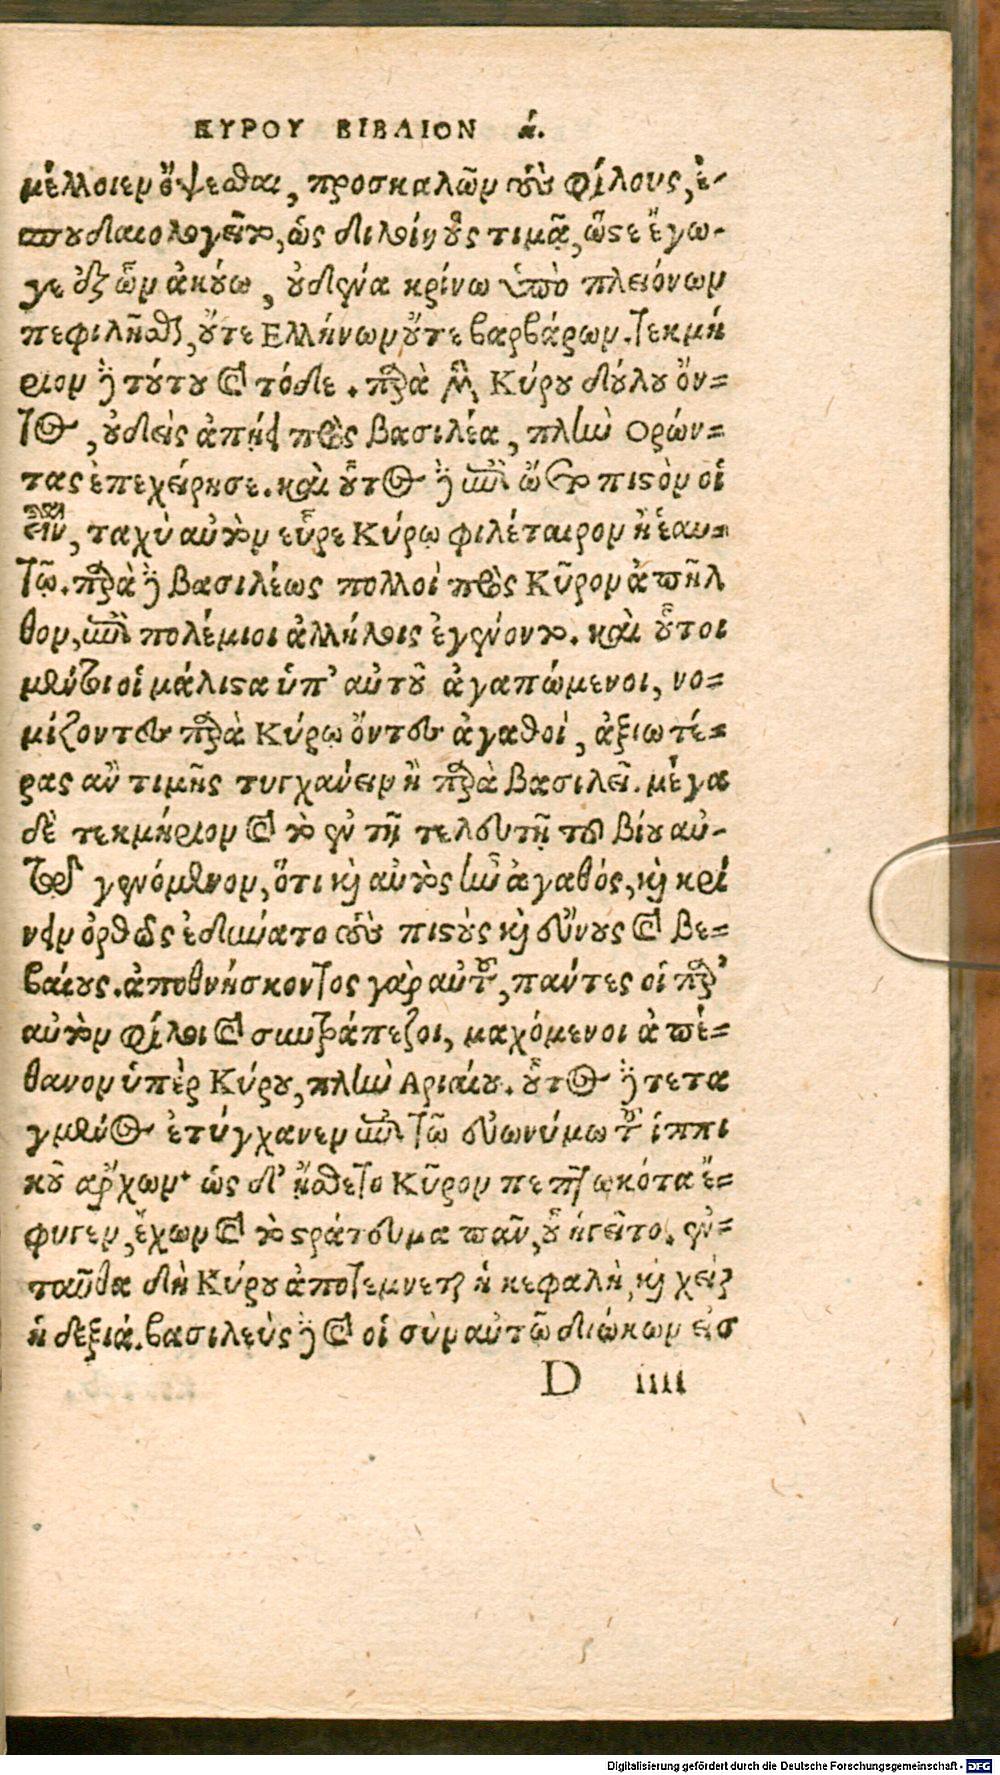 ΚΥΡΟΥ ΒΙΒΛΙΟΝ ά.
μέλλοιεν ὄψεσθαι, προσκαλῶν τοὺς φίλους, ἐ-
σπουδαιολογεῖτο, ὡς δηλοίη οὓς τιμᾷ, ὥστε ἔγω-
γε ἐξ ὧν ἀκούω, οὐδένα κρίνω ὑπὸ πλειόνων
πεφιλῆσθαι, οὔτε Ελλήνων οὔτε βαρβάρων. τεκμή
ριον δὲ τούτου καὶ τόδε. παρὰ μὲν Κύρου δούλου ὄν=
τος, οὐδεὶς ἀπῄει πρὸς βασιλέα, πλὴν Ορόν=
τας ἐπεχείρησε. καὶ οὗτος δὲ ὃν ᾤετο πιστὸν οἱ
εἶναι, ταχὺ αὐτὸν εὗρε Κύρῳ φιλέταιρον ἢ ἑαυ=
τῷ. παρὰ δὲ βασιλέως πολλοὶ πρὸς Κῦρον ἀπῆλ
θον, ἐπεὶ πολέμιοι ἀλλήλοις ἐγένοντο. καὶ οὗτοι
μέντοι οἱ μάλιστα ὑπ' αὐτοῦ ἀγαπώμενοι, νο=
μίζοντες παρὰ Κύρῳ ὄντες ἀγαθοὶ, ἀξιωτέ=
ρας ἂν τιμῆς τυγχάνειν ἢ παρὰ βασιλεῖ. μέγα
δὲ τεκμήριον καὶ τὸ ἐν τῇ τελευτῇ τοῦ βίου αὐ-
τοῦ γενόμενον, ὅτι καὶ αὐτὸς ἦν ἀγαθός, καὶ κρί
νειν ὀρθῶς ἐδύνατο τοὺς πιστοὺς καὶ εὔνους καὶ βε=
βαίους. ἀποθνήσκοντος γὰρ αὐτοῦ, πάντες οἱ παρ'
αὐτὸν φίλοι καὶ συντράπεζοι, μαχόμενοι ἀπέ=
θανον ὑπὲρ Κύρου, πλὴν Αριαίου. οὗτος δὲ τετα
γμένος ἐτύγχανεν ἐπὶ τῷ εὐωνύμῳ τοῦ ἱππι
κοῦ ἄρχων· ὡς δ' ᾔσθετο Κῦρον πεπτωκότα ἔ=
φυγεν, ἔχων καὶ τὸ στράτευμα πᾶν, οὗ ἡγεῖτο. ἐν=
ταῦθα δὴ Κύρου ἀποτέμνεται ἡ κεφαλὴ, καὶ χεὶρ
ἡ δεξιά. βασιλεὺς δὲ καὶ οἱ σὺν αὐτῷ διώκων εἰσ
D iiii
Digitalisierung gefördert durch die Deutsche Forschungsgemeinschaft - DFG